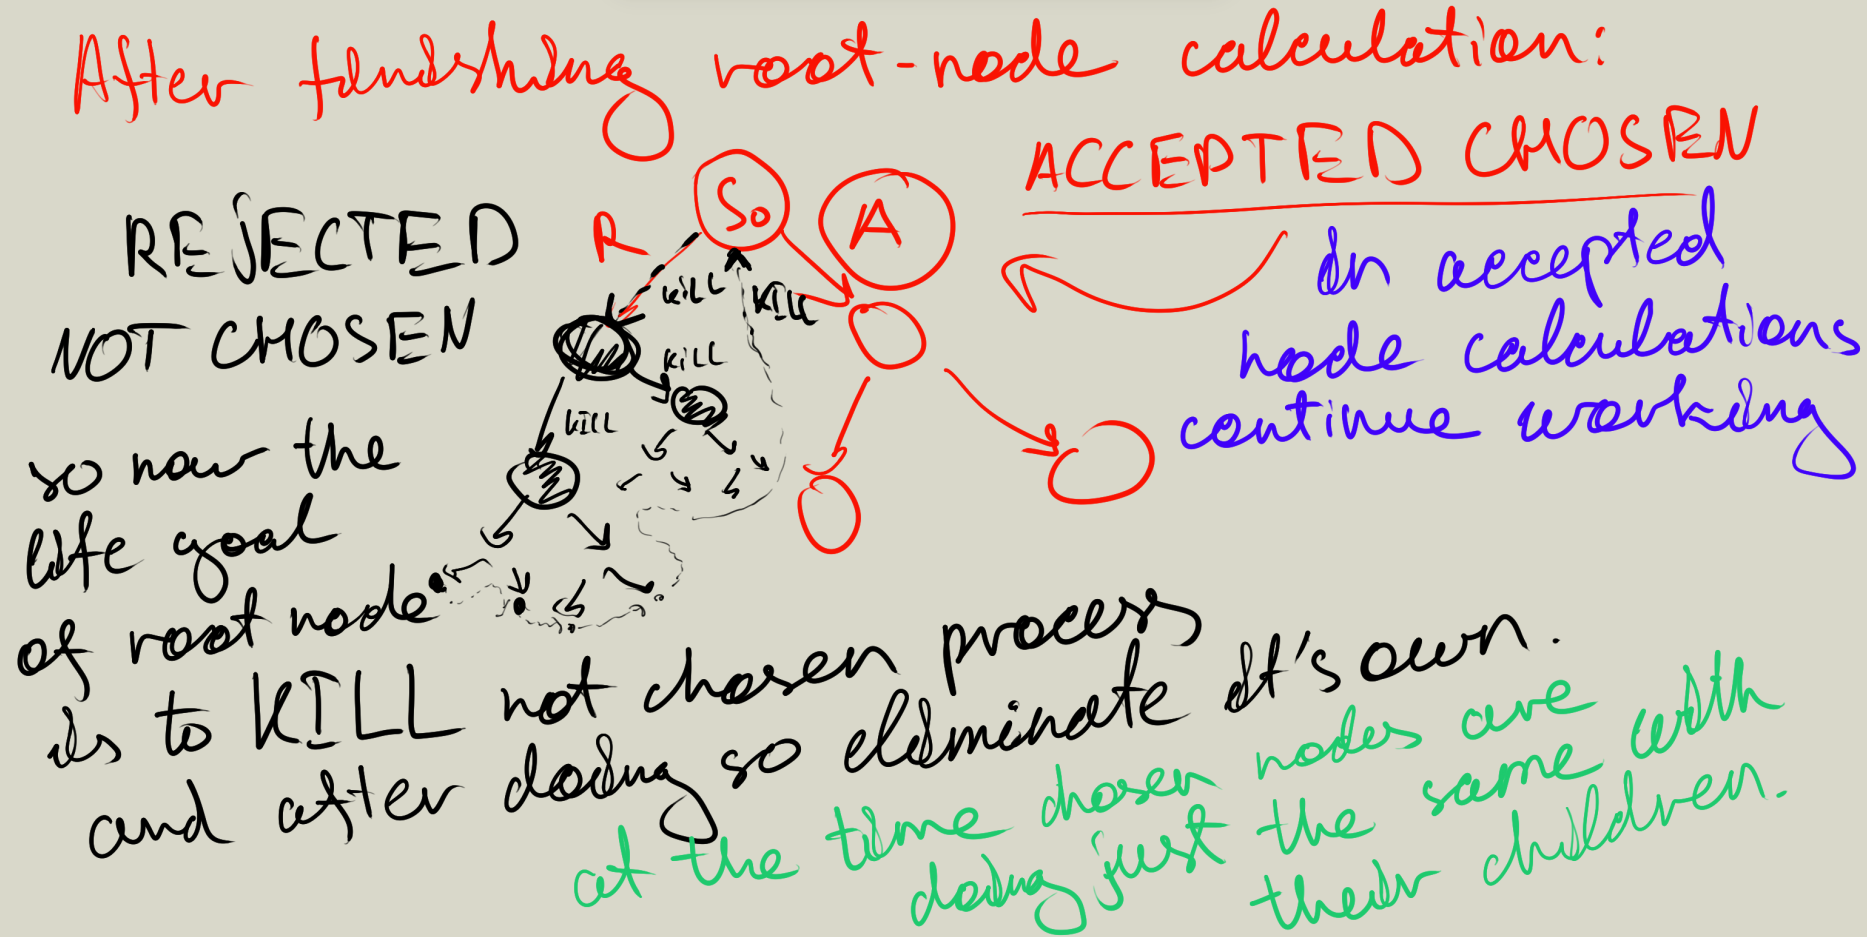 After finishing root-node calculation:
ACCEPTED CHOSEN
REJECTED
NOT CHOSEN
R
So
A
kiLL
KILL
kiLL
kiLL
In accepted
node calculations
continue working
so now the
life goal
of root node
is to KILL not chosen process
and after doing so eliminate it's own.
at the time chosen nodes are
doing just the same with
their children.